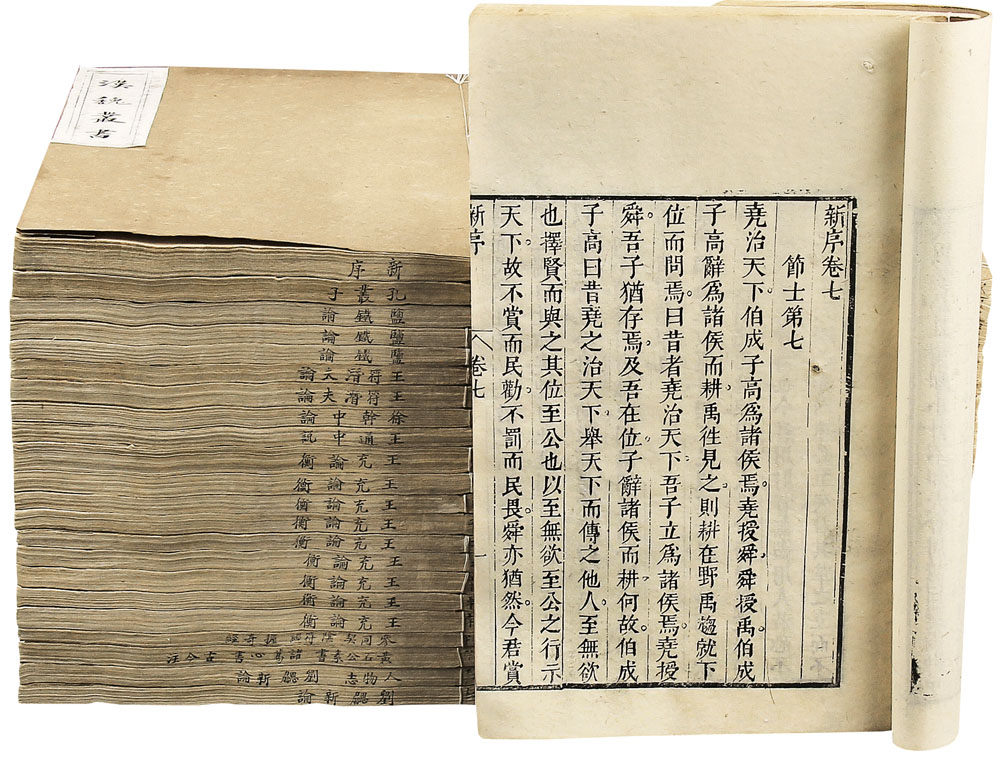 漢魏叢書
新序
孔叢子
鹽鐵論
鹽鐵論
鹽鐵論
王符潛夫論
王符潛夫論
徐幹中論
王通中說
王充論衡
王充論衡
王充論衡
王充論衡
王充論衡
王充論衡
王充論衡
王充論衡
王充論衡
參同契陰符經握奇經
黃石公素書諸葛心書古今注
人物志劉勰新論
劉勰新論
新序卷七
節士第七
堯治天下。伯成子高爲諸侯焉。堯授舜。舜授禹。伯成
子高辭爲諸侯而耕。禹徃見之。則耕在野。禹趨就下
位而問焉。曰昔者堯治天下。吾子立爲諸侯焉。堯授
舜。吾子猶存焉。及吾在位。子辭諸侯而耕。何故。伯成
子高曰。昔堯之治天下。舉天下而傳之他人。至無欲
也。擇賢而與之其位。至公也。以至無欲至公之行示
天下。故不賞而民勸。不罰而民畏。舜亦猶然。今君賞
新序 卷七 一